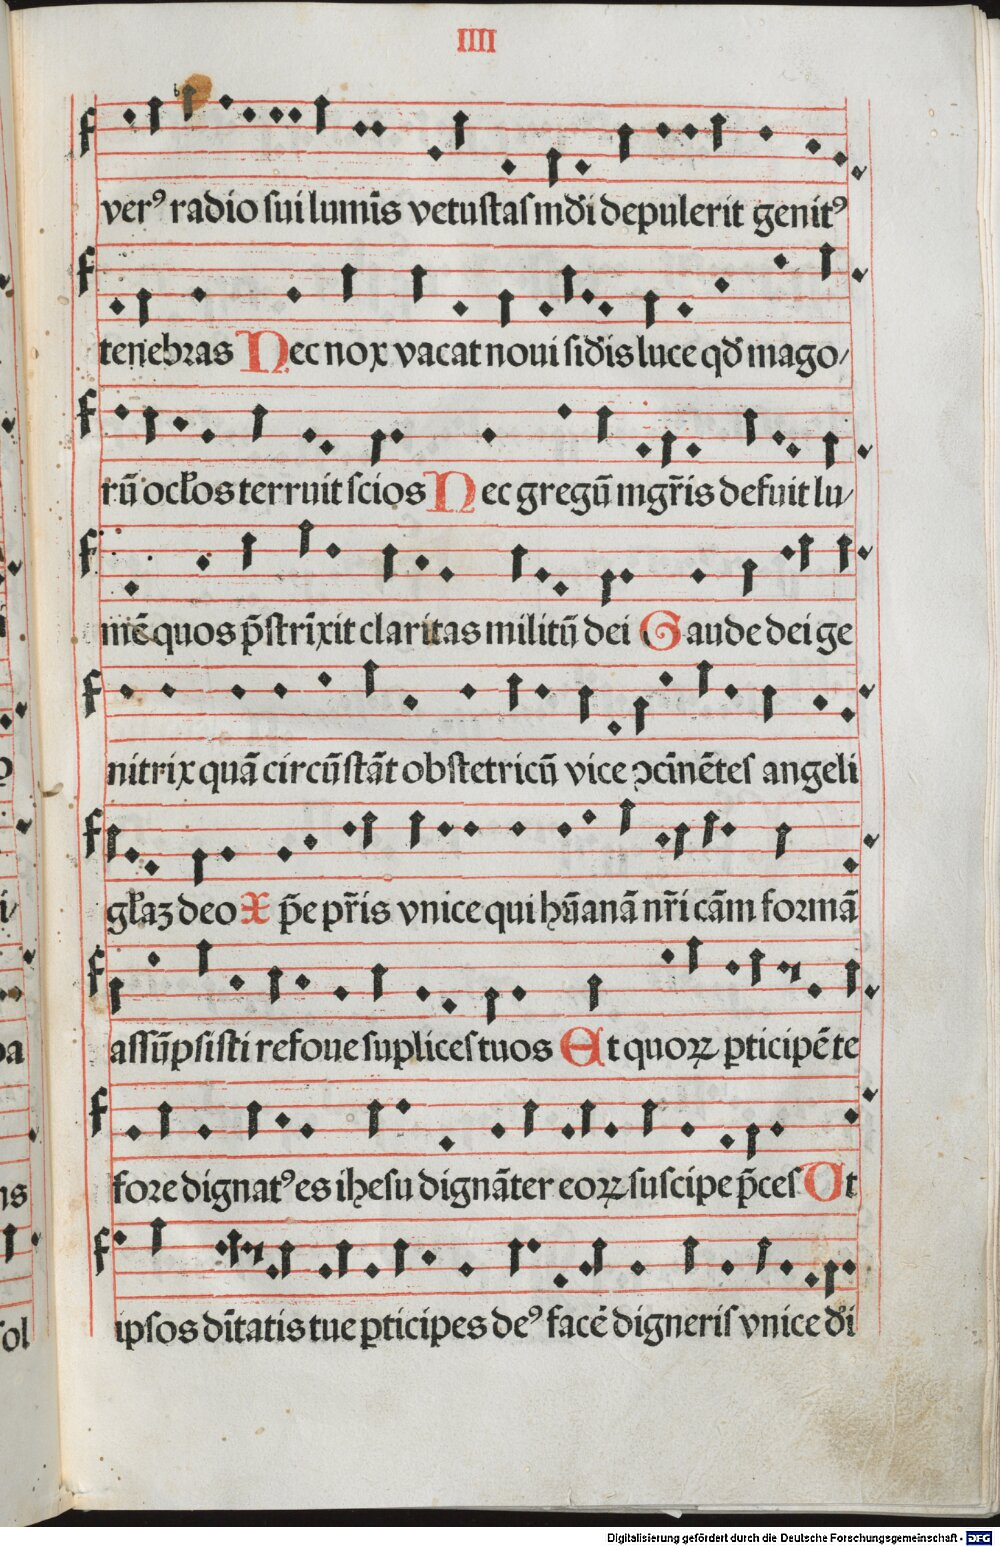 IIII
verꝰ radio sui lumīs vetustas mdi depulerit genitꝰ
tenebras Nec nox vacat noui sidis luce qd mago/
rū oclos terruit scios Nec gregū mgr̄is defuit lu/
mē quos p̄strīxit claritas militū dei Gaude dei ge
nitrix quā circūstāt obstetricū vice ↄcīnētes angeli
glaꝫ deo Xp̄e pr̄is vnice qui hūanā nr̄i cām formā
assūpsisti refoue suplices tuos Et quoꝝ ꝑticipē te
fore dignatꝰ es ihesu dignāter eoꝝ suscipe p̄ces Ut
ipsos dītatis tue ꝑticipes deꝰ facē digneris vnice di
pa
ns
sol
Digitalisierung gefördert durch die Deutsche Forschungsgemeinschaft - DFG